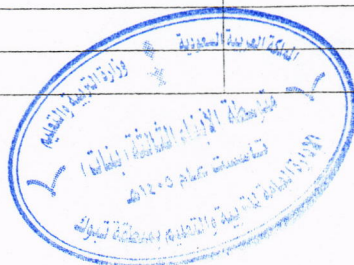 المملكة العربية السعودية
وزارة التربية والتعليم
متوسطة الأبناء الثالثة
تأسست عام ١٤٠٥هـ
الإدارة العامة للتربية والتعليم بمنطقة تبوك